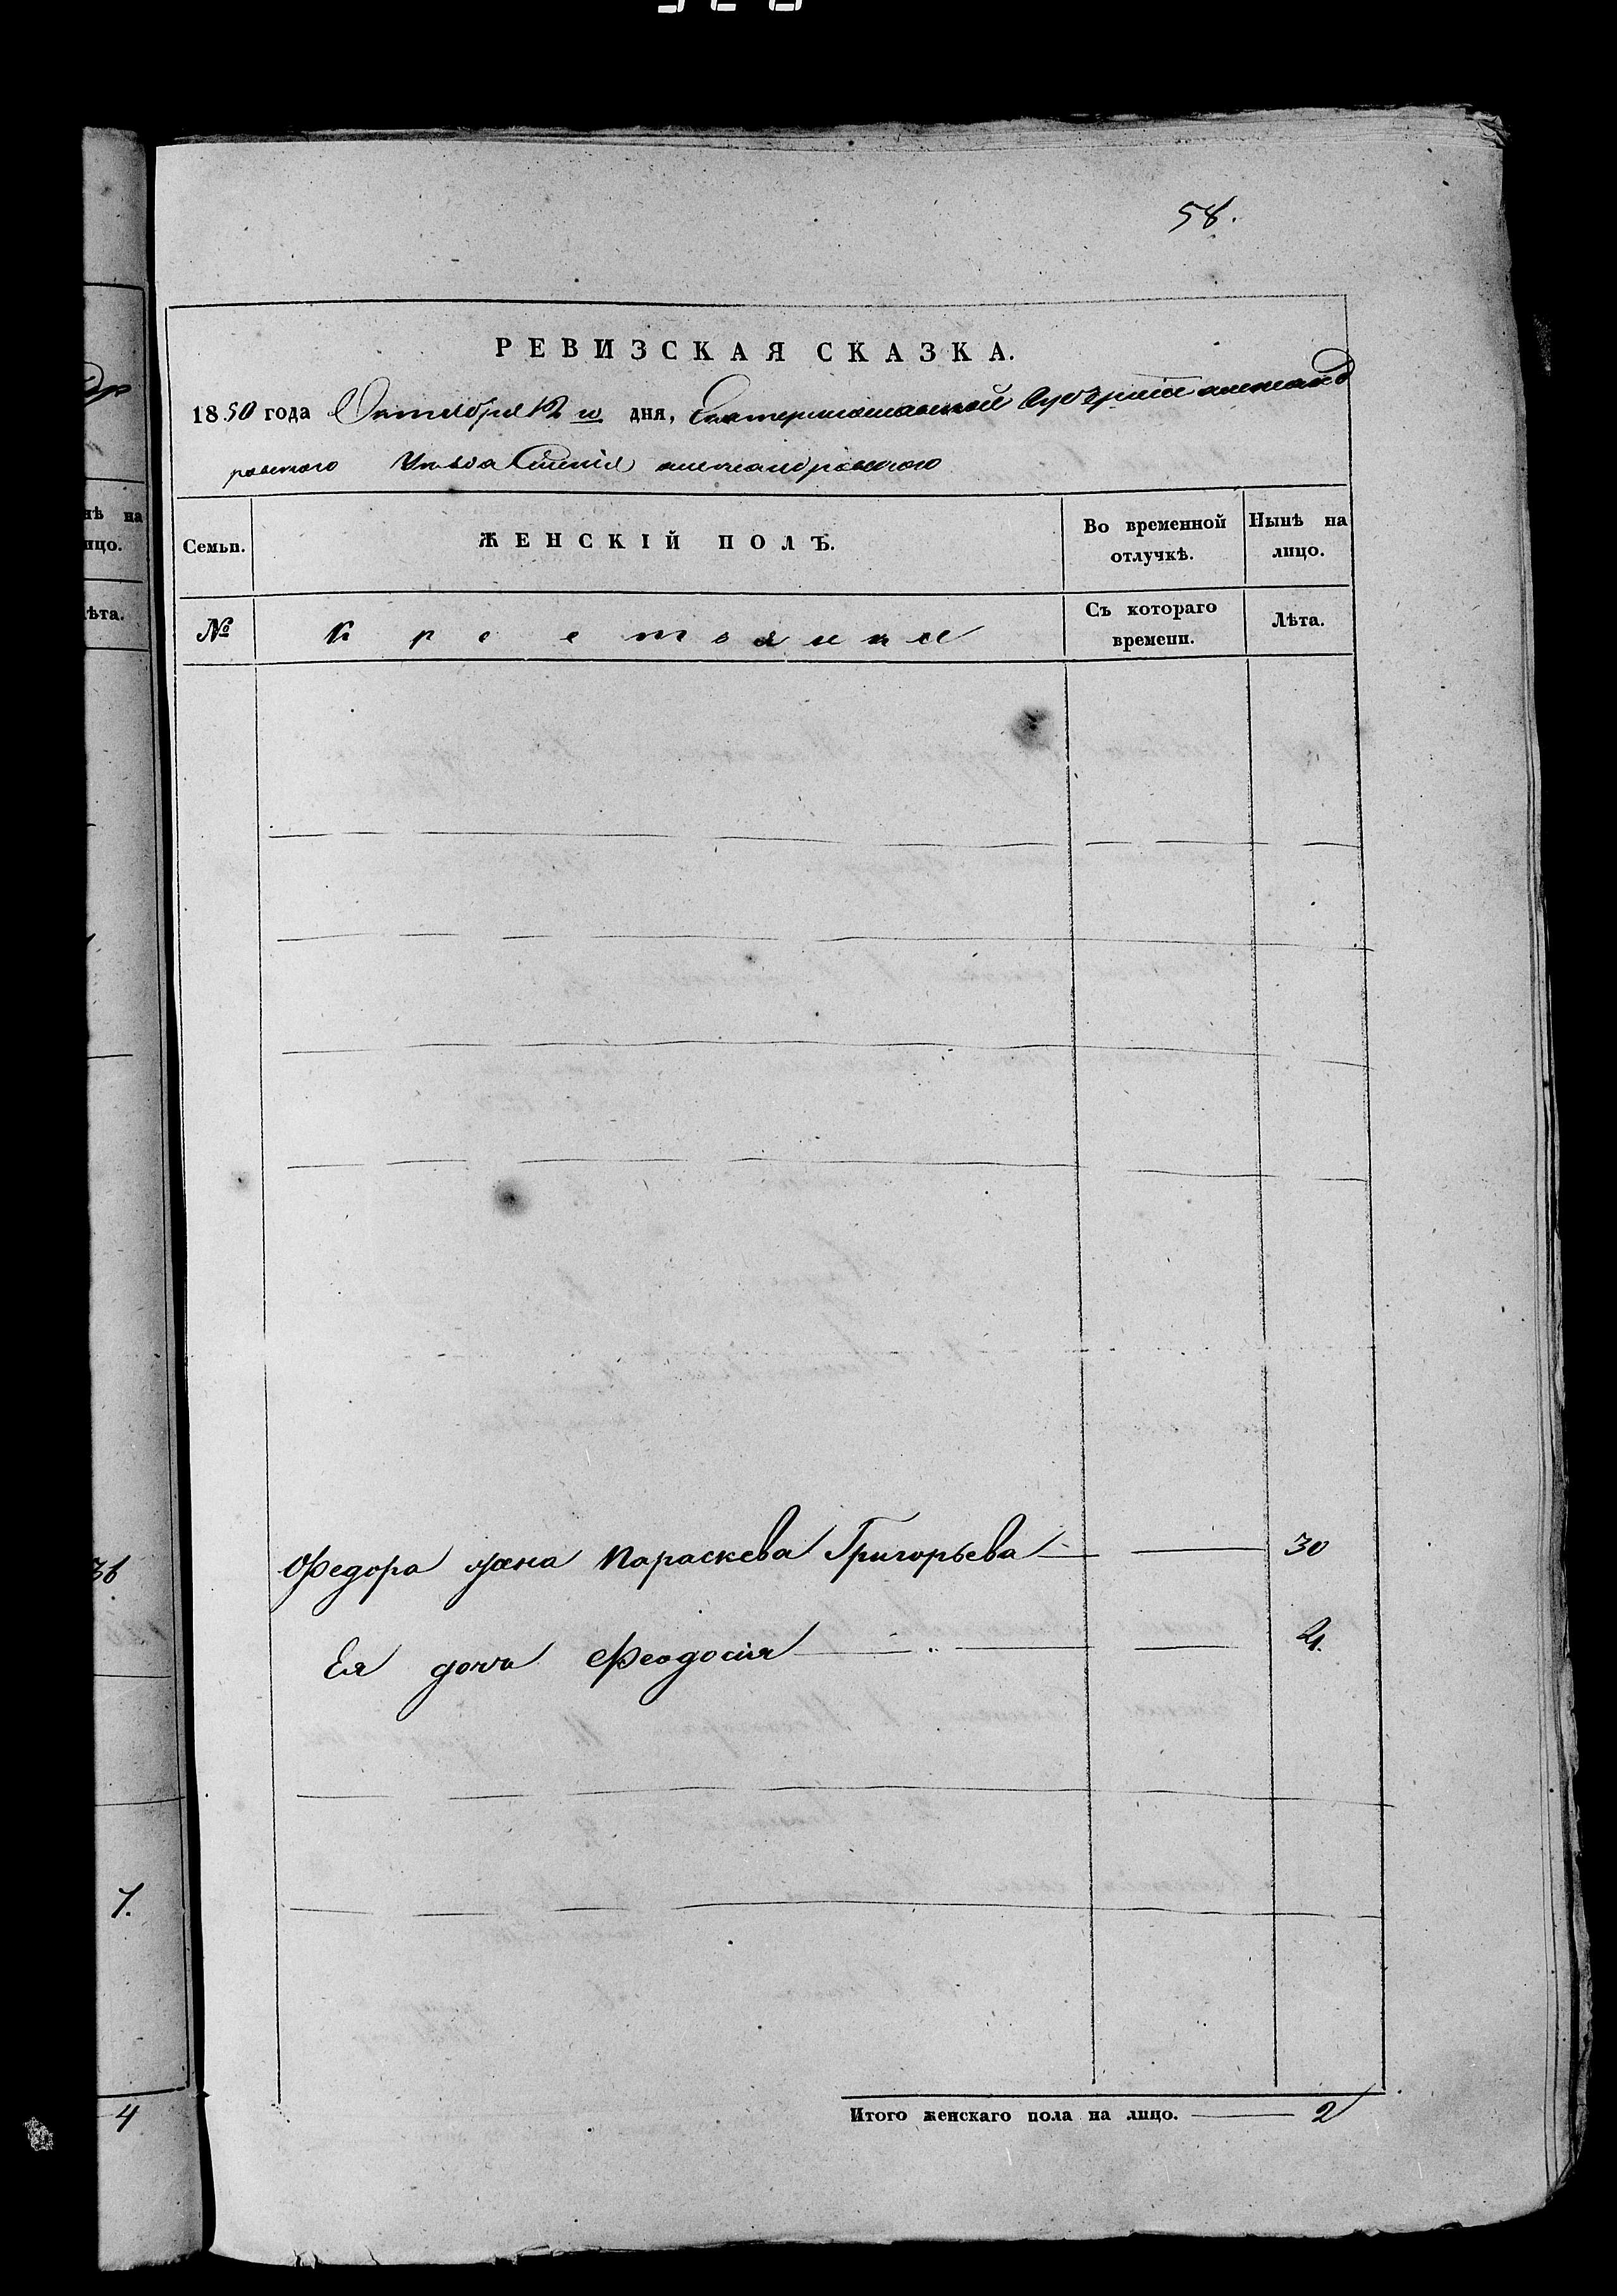 58.
РЕВИЗСКАЯ СКАЗКА.
1850 года Октября 12 го дня, Екатеринославской Губерніи александ
ровского Уѣзда имѣнія александровского
Семьи.
ЖЕНСКІЙ ПОЛЪ.
Во временной отлучкѣ.
Нынѣ на лицо.
№
Крестьянки
Съ котораго времени.
Лѣта.
Федора жена Параскева Григорьева — — 30
Ея дочь Феодосия — „ — —
Итого женскаго пола на лицо. — 2
нѣ на
ицо.
ѣта.
7.
4